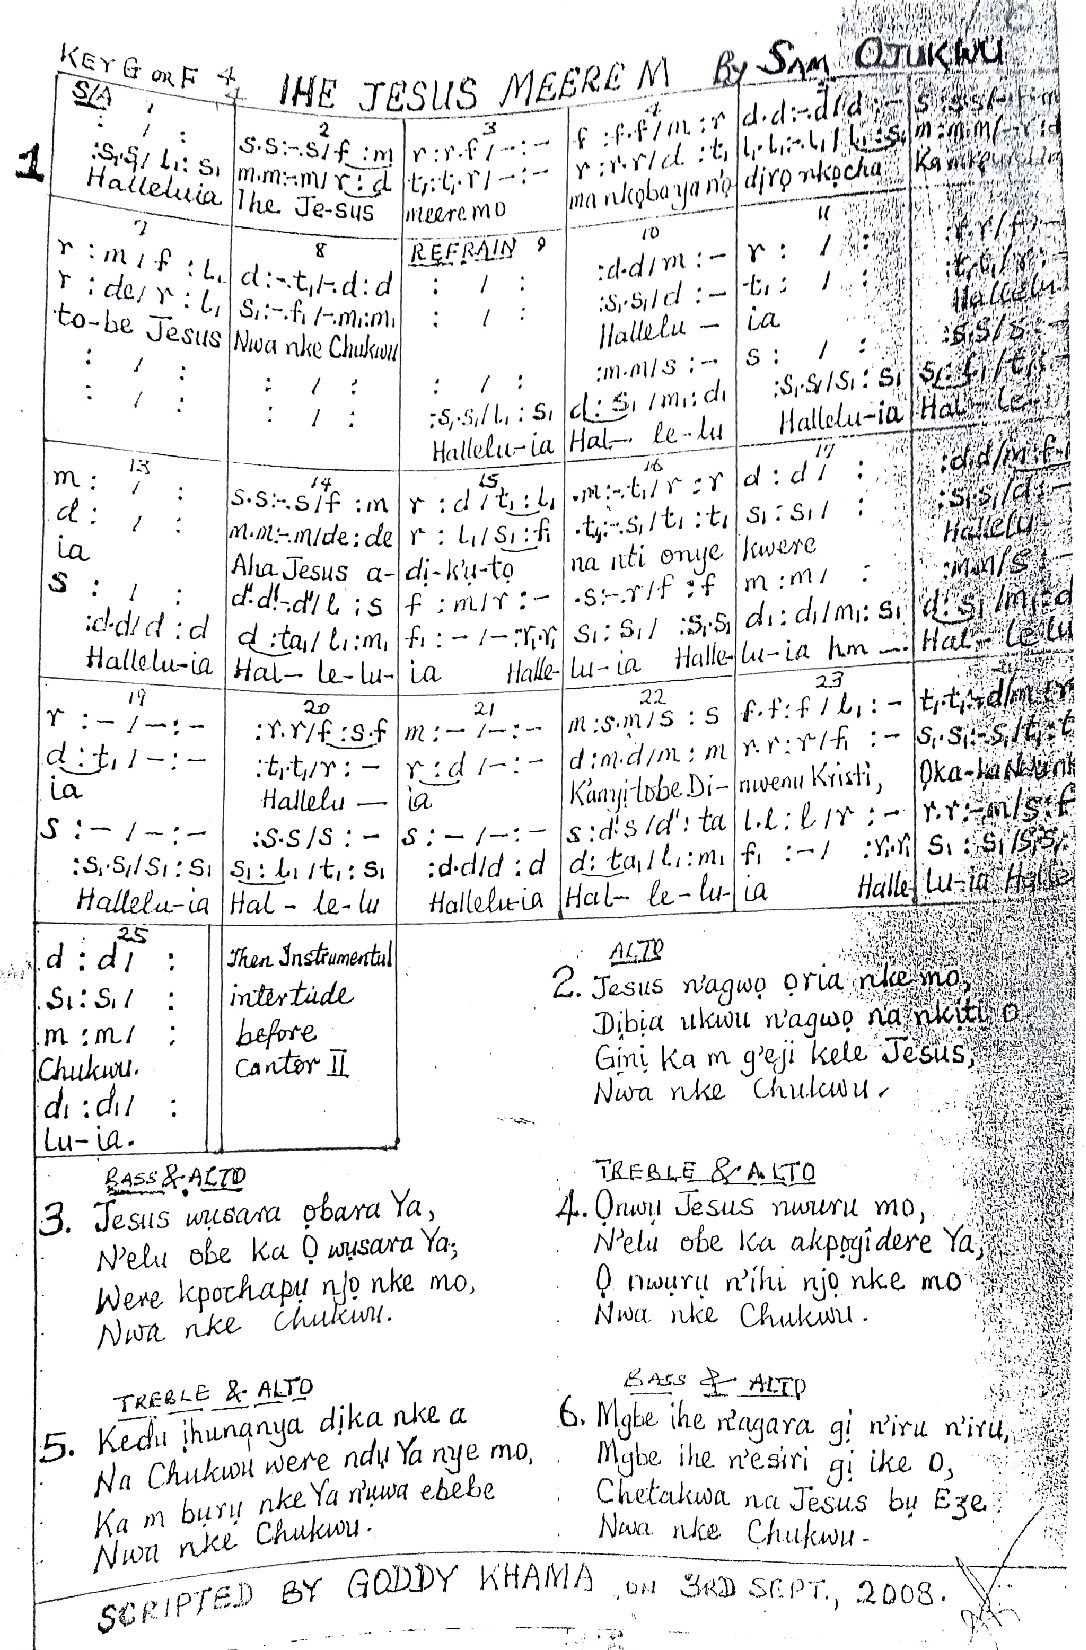 KEY G OR F 4/4 IHE JESUS MEERE M By SAM OJUKWU
1
S/A
: / :
: / :
:s₁.s₁/ l₁ : s₁
Halleluia
2
s.s:-.s/f : m
m.m:-.m/r : d
Ihe Je-sus
3
r : r.f/- : -
t₁ : t₁.r/- : -
meere mo
4
f : f.f/m : r
r : r.r/d : t₁
ma nkọba ya n'ọ
d.d:-.d/d : -
l₁.l₁:-.l₁/l₁ : s₁
dịrọ nkọcha
s : s.s/-
m : m.m/-
7
r : m/f : l₁
r : de/r : l₁
to-be Jesus
: / :
: / :
8
d:-.t₁/-.d:d
s₁:-.f₁/-.m₁:m₁
Nwa nke Chukwu
: / :
: / :
REFRAIN 9
: / :
: / :
: / :
:s₁.s₁/l₁ : s₁
Hallelu-ia
10
:d.d/m : -
:s₁.s₁/d : -
Hallelu -
:m.m/s : -
d : s₁/m₁ : d₁
Hal- le-lu
11
r : / :
t₁ : / :
ia
s : / :
:s₁.s₁/s₁ : s₁
Hallelu-ia
:r.r/f : -
:t₁.t₁/r : -
Hallelu
:s.s/s : -
s₁ : l₁/t₁
Hal- le-
13
m : / :
d : / :
ia
s : / :
:d.d/d : d
Hallelu-ia
14
s.s:-.s/f : m
m.m:-.m/de : de
Aha Jesus a-
d'.d':-.d'/l : s
d : ta₁/l₁ : m₁
Hal- le-lu-
15
r : d/t₁ : l₁
r : l₁/s₁ : f₁
dị-k'ụ-tọ
f : m/r : -
f₁ : -/- : r₁.r₁
ia Halle-
16
.m:-.t₁/r : r
.t₁:-.s₁/t₁ : t₁
na ntị onye
.s:-.r/f : f
s₁ : s₁/ :s₁.s₁
lu-ia Halle-
17
d : d/ :
s₁ : s₁/ :
kwere
m : m/ :
d₁ : d₁/m₁ : s₁
lu-ia hm -
:d.d/m : f
:s₁.s₁/d : -
Hallelu
:m.m/s : -
d : s₁/m₁ : d
Hal- le lu
19
r : -/- : -
d : t₁/- : -
ia
s : -/- : -
:s₁.s₁/s₁ : s₁
Hallelu-ia
20
:r.r/f : s.f
:t₁.t₁/r : -
Hallelu -
:s.s/s : -
s₁ : l₁/t₁ : s₁
Hal - le-lu
21
m : -/- : -
r : d/- : -
ia
s : -/- : -
:d.d/d : d
Hallelu-ia
22
m : s.m/s : s
d : m.d/m : m
K'anyị tobe Di-
s : d'.s/d' : ta
d : ta₁/l₁ : m₁
Hal- le-lu-
23
f.f : f/l₁ : -
r.r : r/f₁ : -
nwenu Kristi,
l.l : l/r : -
f₁ : -/ :r₁.r₁
ia Halle
t₁.t₁:-.d/m
s₁.s₁:-.s₁/t₁ : t₁
Ọka-ka
r.r:-.m/s : f
s₁ : s₁/s₁.s₁
lu-ia Halle
25
d : d/ :
s₁ : s₁/ :
m : m/ :
Chukwu.
d₁ : d₁/ :
Lu-ia.
Then Instrumental
intertude
before
Cantor II
ALTO
2. Jesus n'agwọ ọria nke mo,
Dibịa ukwu n'agwọ na nkịtị O
Gịnị Ka m g'eji kele Jesus,
Nwa nke Chukwu.
BASS & ALTO
3. Jesus wụsara ọbara Ya,
N'elu obe ka Ọ wụsara Ya;
Were kpochapụ njọ nke mo,
Nwa nke Chukwu.
TREBLE & ALTO
4. Ọnwụ Jesus nwuru mo,
N'elu obe ka akpọgidere Ya;
Ọ nwụrụ n'ihi njọ nke mo
Nwa nke Chukwu.
TREBLE & ALTO
5. Kedu ịhụnanya dịka nke a
Na Chukwu were ndụ Ya nye mo,
Ka m bụrụ nke Ya n'uwa ebebe
Nwa nke Chukwu.
BASS & ALTO
6. Mgbe ihe n'agara gị n'iru n'iru,
Mgbe ihe n'esiri gị ike O,
Chetakwa na Jesus bụ Eze
Nwa nke Chukwu.
SCRIPTED BY GODDY KHAMA ON 3RD SEPT., 2008.